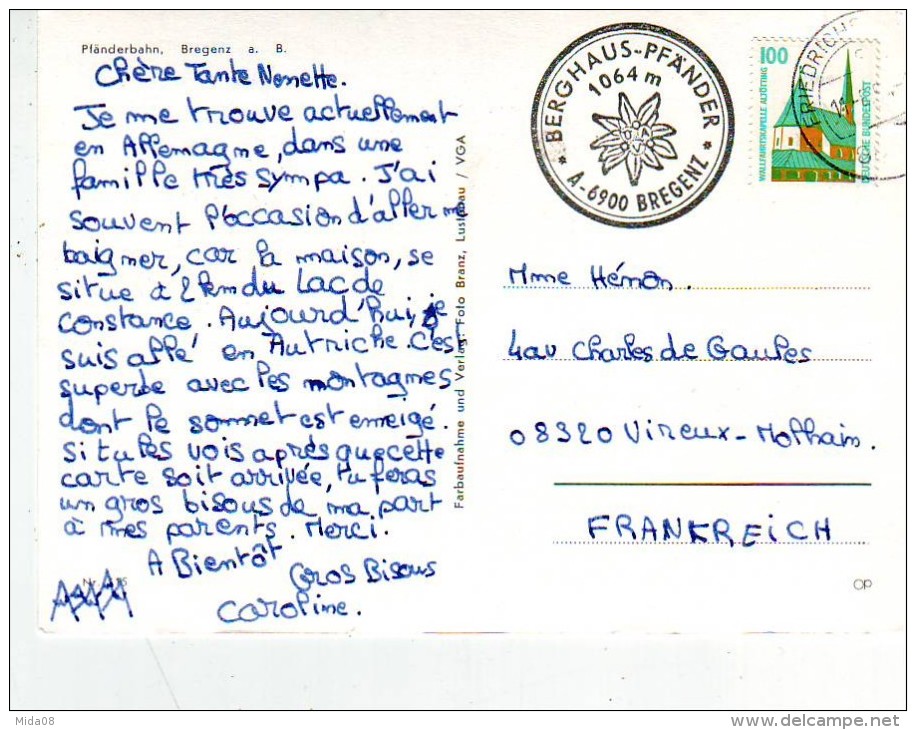 Pfänderbahn, Bregenz a. B.
Chère Tante Nenette.
Je me trouve actuellement
en Allemagne, dans une
famille très sympa. J'ai
souvent l'occasion d'aller me
baigner, car la maison, se
situe à 2 km du Lac de
Constance. Aujourd'hui, je
suis allé en Autriche. C'est
superbe avec les montagnes
dont le sommet est enneigé.
Si tu les vois après que cette
carte soit arrivée, tu feras
un gros bisous de ma part
à mes parents. Merci.
A Bientôt
Gros Bisous
Caroline.
Farbaufnahme und Verlag: Foto Branz, Lustenau / VGA
BERGHAUS-PFÄNDER
1064 m
A-6900 BREGENZ
100
WALLFAHRTSKAPELLE ALTÖTTING
DEUTSCHE BUNDESPOST
Mme Hémon.
4 av Charles de Gaules
08320 Vireux-Molhain.
FRANKREICH
OP
Mida08
delcampe.net